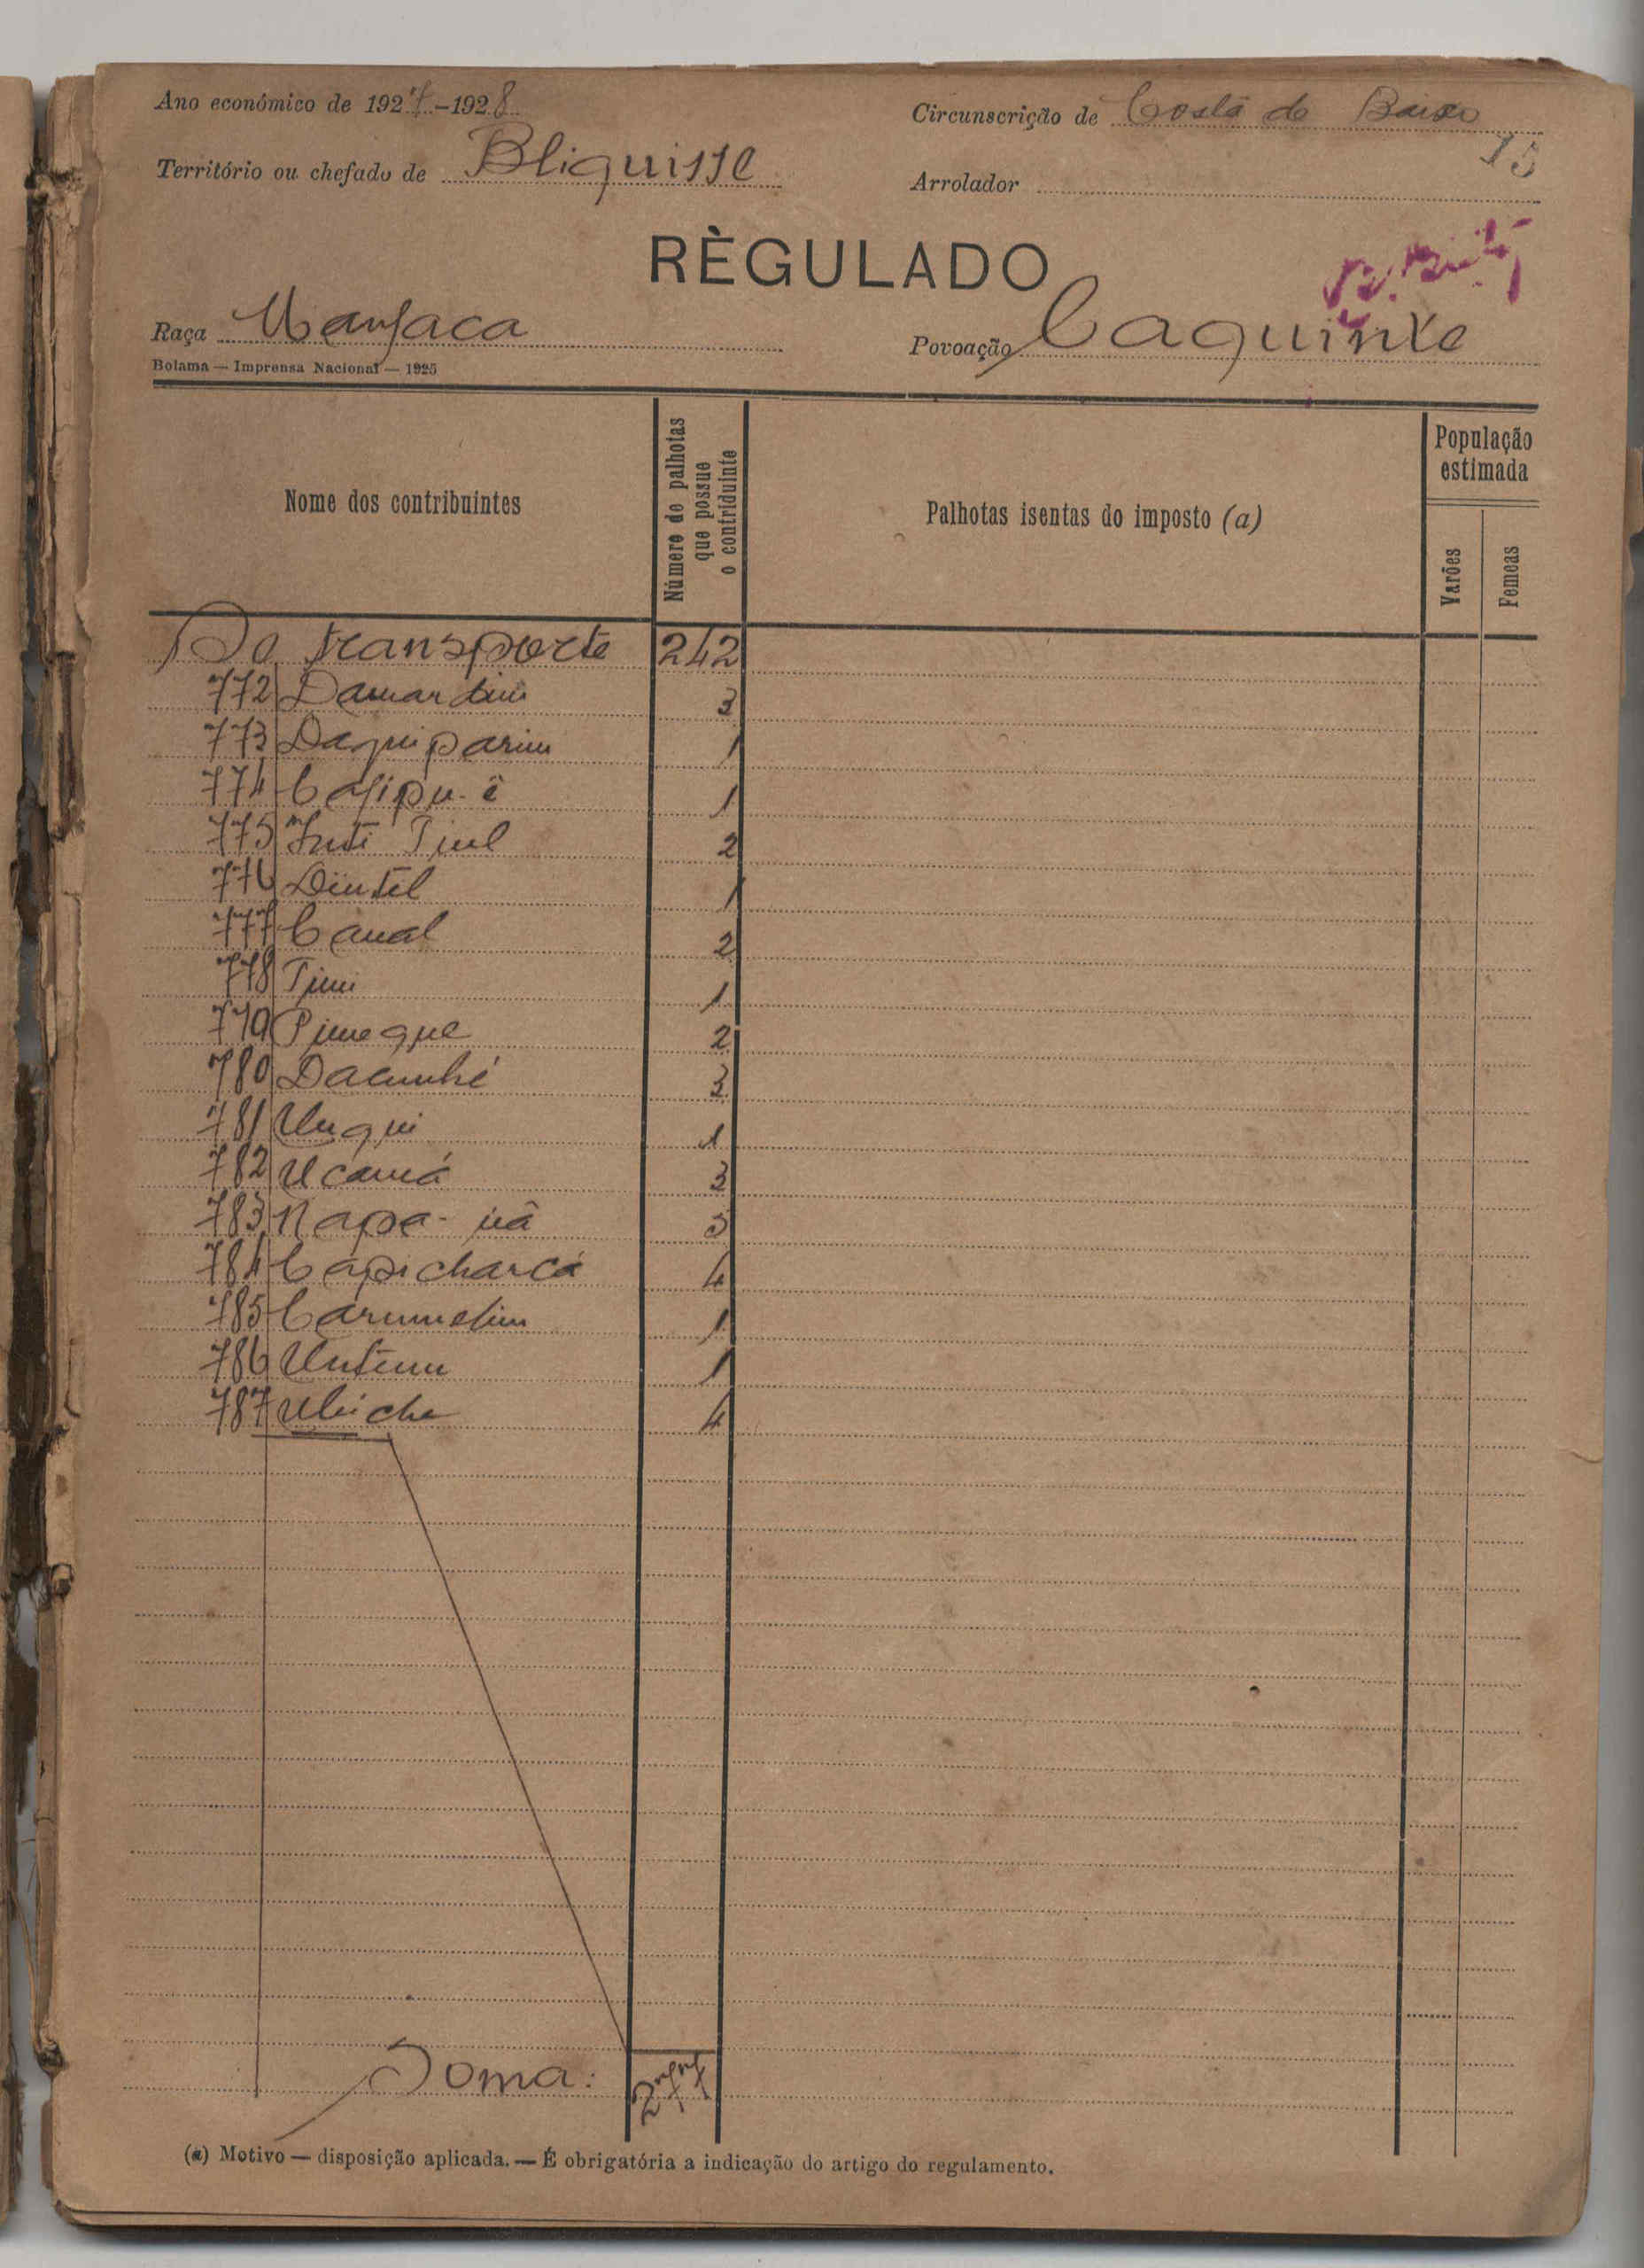 Ano económico de 1927-1928
Circunscrição de Costa de Baixo
15
Território ou chefado de Bliquisse
Arrolador
RÈGULADO
Raça Manjaca
Povoação Caquinte
Bolama — Imprensa Nacional — 1925
Nome dos contribuintes
Número de palhotas que possue o contriduinte
Palhotas isentas do imposto (a)
População estimada
Varões
Femeas
Do transporte 242
772 Damardim 3
773 Daquiparim 1
774 Cajipu-ê 1
775 Juti Tiul 2
776 Dintil 1
777 Canal 2
778 Timi 1
779 Pimeque 2
780 Dacunhé 3
781 Unqui 1
782 Ucamá 3
783 Napa-uâ 5
784 Capicharcá 4
785 Carumelim 1
786 Untimu 1
787 4
Soma: 277
(a) Motivo — disposição aplicada. — É obrigatória a indicação do artigo do regulamento.